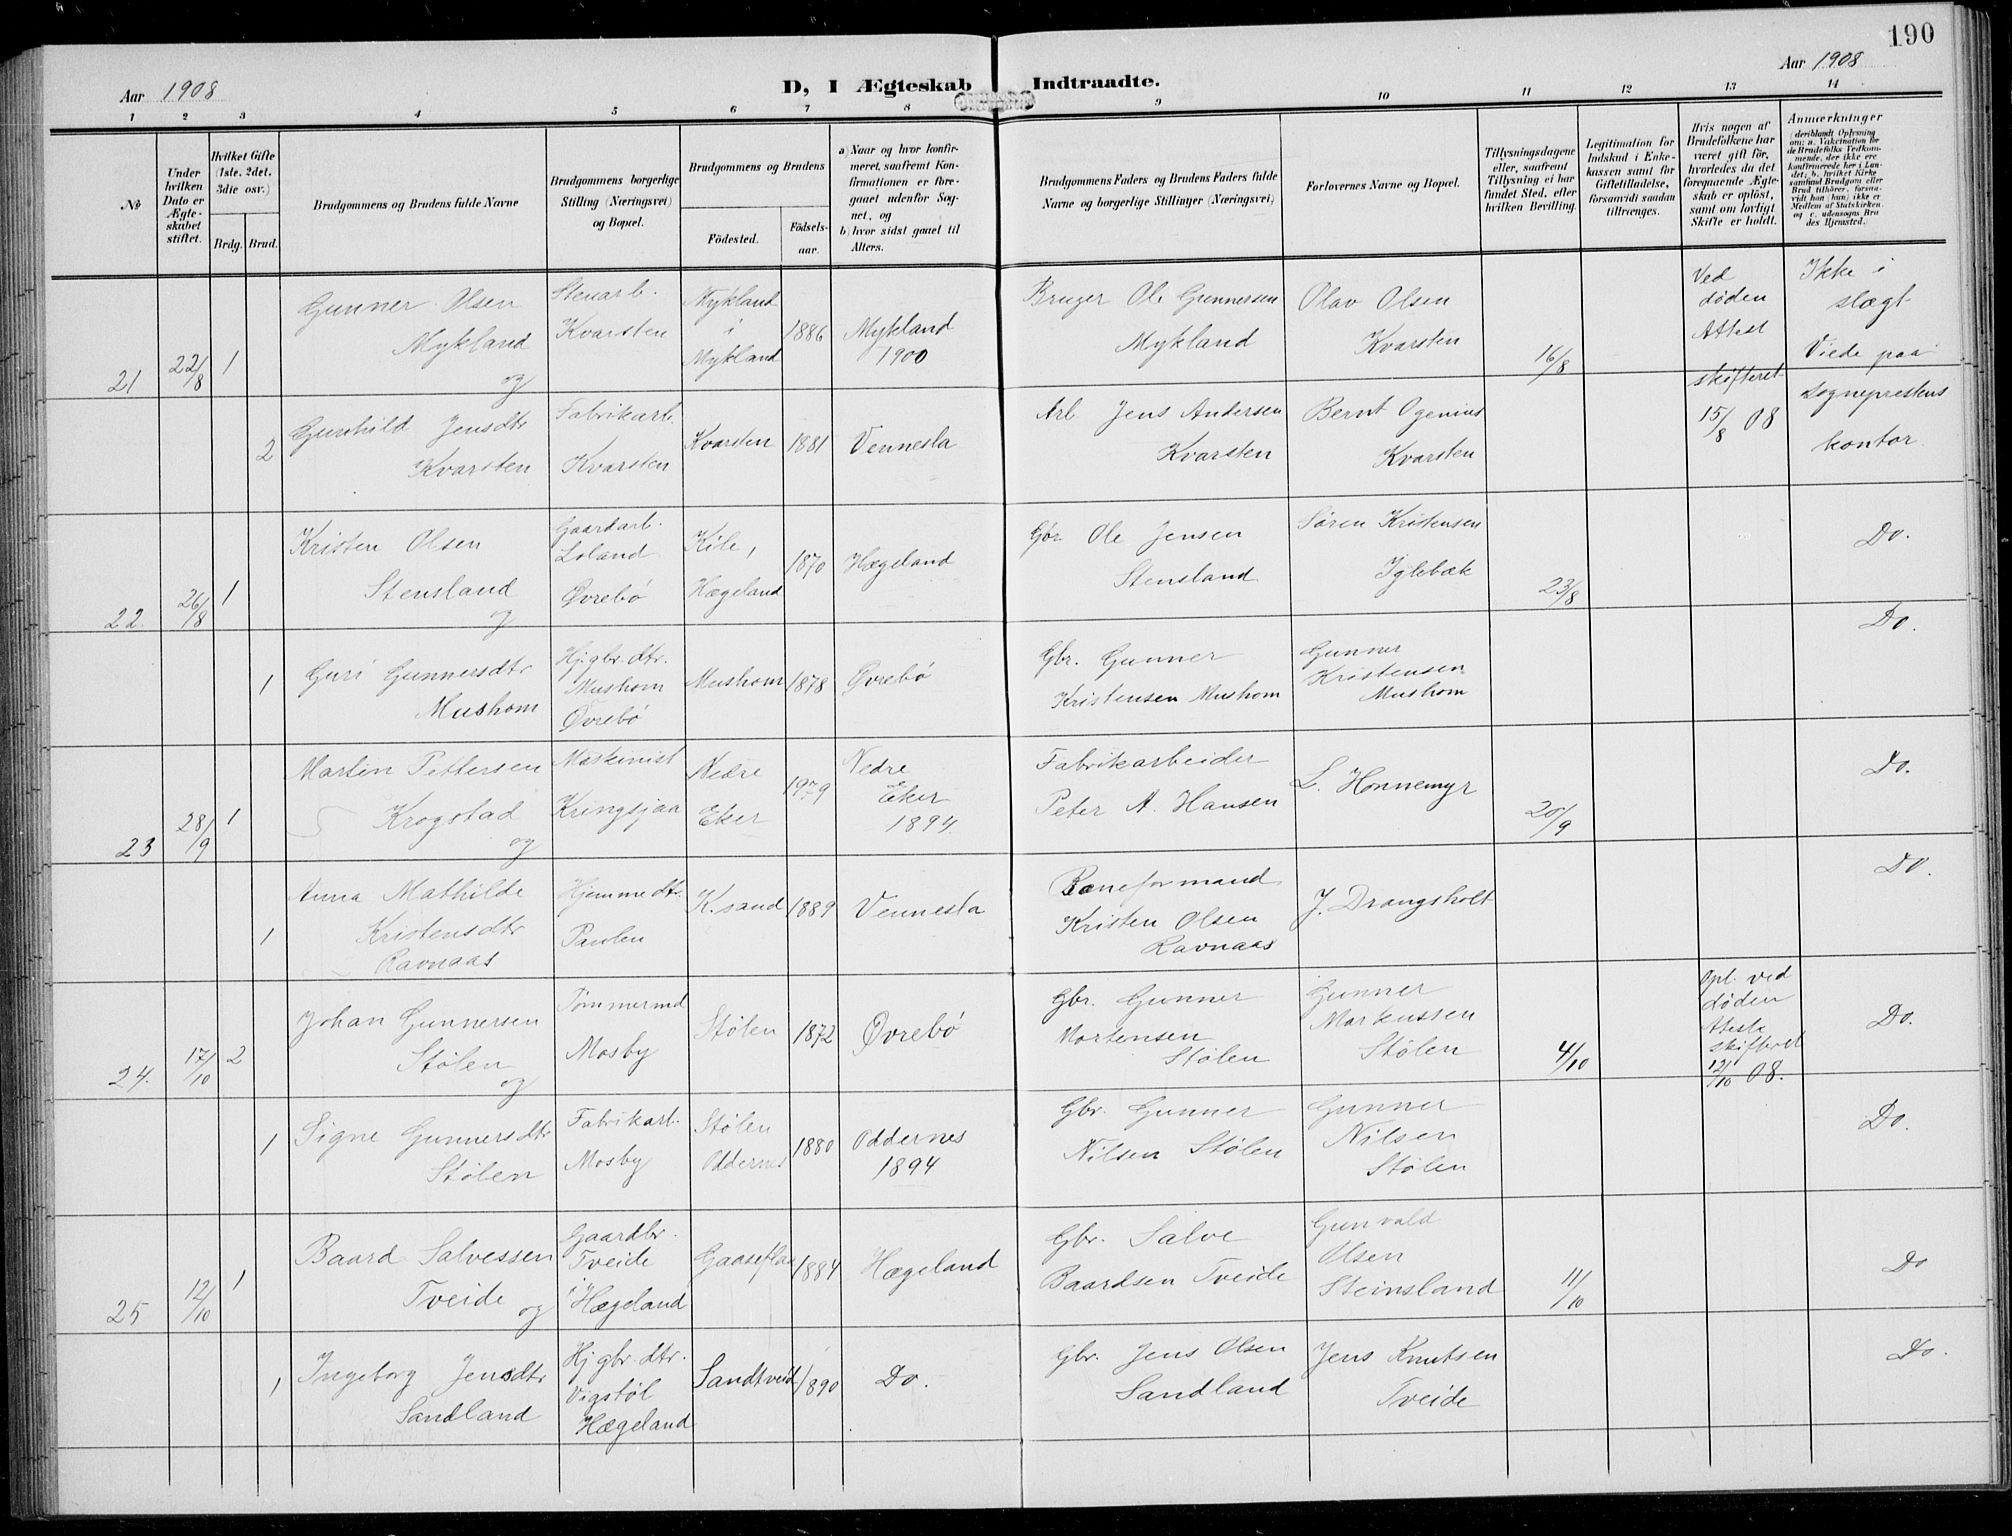 190
Aar 1908
D, I Ægteskab Indtraadte.
Aar 1908
1 2 3 4 5 6 7 8 9 10 11 12 13 14
No
Under hvilken Dato er Ægteskabet stiftet.
Hvilket Gifte (1ste, 2det, 3die osv.)
Brdg. Brud.
Brudgommens og Brudens fulde Navne
Brudgommens borgerlige Stilling (Næringsvei) og Bopæl.
Brudgommens og Brudens
Födested.
Födselsaar.
a) Naar og hvor konfirmeret, saafremt Konfirmationen er foregaaet udenfor Sognet, og
b) hvor sidst gaaet til Alters.
Brudgommens Faders og Brudens Faders fulde Navne og borgerlige Stillinger (Næringsvei)
Forlovernes Navne og Bopæl.
Tillysningsdagene eller, saafremt Tillysning ei har fundet Sted, efter hvilken Bevilling.
Legitimation for Indskud i Enkekassen samt for Giftetilladelse, forsaavidt saadan tiltrænges.
Hvis nogen af Brudefolkene har været gift för, hvorledes da det foregaaende Ægteskab er oplöst, samt om lovligt Skifte er holdt.
Anmærkninger (deriblandt Oplysning om: a. Vakcination for de Brudefolks Vedkommende, der ikke ere konfirmerede her i Landet; b. hvilket Kirkesamfund Brudgom eller Brud tilhører, forsavidt han (hun) ikke er Medlem af Statskirken, og c. udensogns Brudes Hjemsted.
21 22/8 1
Gunner Olsen
Mykland
og
Stenarb.
Kvarsten
Mykland
i
Mykland
1886
Mykland
1900
Bruger Ole Gunnersen
Mykland
Olav Olsen
Kvarsten
16/8
Ved
døden
Attest
skifteret
15/8 08
Ikke i
slægt
Viede paa
Sogneprestens
kontor.
2
Gunhild Jensdtr
Kvarsten
Fabrikarb.
Kvarsten
Kvarsten
1881
Vennesla
Arb Jens Andersen
Kvarsten
Bernt Ogenius
Kvarsten
22. 26/8 1
Kristen Olsen
Stensland
og
Gaardarb.
Loland
Øvrebö
Kile,
Hægeland
1870
Hægeland
Gbr Ole Jensen
Stensland
Søren Kristensen
Iglebæk
23/8
Do.
1
Guri Gunnersdtr
Mushom
Hj.gbr.dtr.
Mushom
Øvrebö
Mushom
1878
Øvrebö
Gbr. Gunner
Kristensen Mushom
Gunner
Kristensen
Mushom
Do.
23 28/9 1
Martin Pettersen
Krogstad
og
Maskinist
Kringsjaa
Nedre
Eker
1979
Nedre
Eker
1894
Fabrikarbeider
Peter A. Hansen
L. Honnemyr
20/9
Do.
1
Anna Mathilde
Kristensdtr
Ravnaas
Hjemmedtr.
Paulen
K.sand
1889
Vennesla
Baneformand
Kristen Olsen
Ravnaas
J. Drangsholt
Do.
24. 17/10 2
Johan Gunnersen
Stølen
og
Tømmermd
Mosby
Stølen
1872
Øvrebö
Gbr. Gunner
Mortensen
Stølen
Gunner
Markussen
Stølen
4/10
Opl. ved
døden
Attest
skifteret
12/10 08.
Do.
1
Signe Gunnersdtr
Stølen
Fabrikarb.
Mosby
Stølen
Oddernes
1880
Oddernes
1894
Gbr. Gunner
Nilsen Stølen
Gunner
Nilsen
Stølen
Do.
25 12/10 1
Baard Salvessen
Tveide
og
Gaardbr.
Tveide
i Hægeland
Gaaseflaa
1884
Hægeland
Gbr. Salve
Baardsen Tveide
Gunvald
Olsen
Steinsland
11/10
Do
1
Ingeborg Jensdtr
Sandland
Hj gbr. dtr.
Vigstøl
Hægeland
Sandtveid
1890
Do.
Gbr. Jens Olsen
Sandland
Jens Knutsen
Tveide
Do.